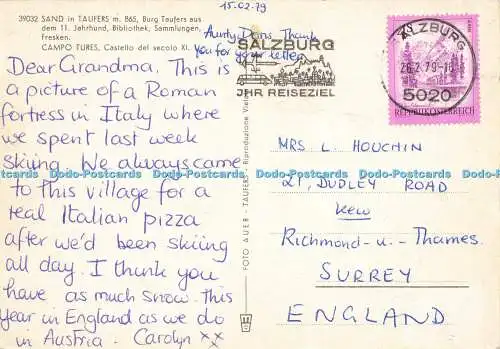 15.02.79
39032 SAND in TAUFERS m. 865, Burg Taufers aus
dem 11. Jahrhund, Bibliothek, Sammlungen,
Fresken.
CAMPO TURES, Castello del secolo XI.
Aunty Doris Thank
you for your letter
Dear Grandma. This is
a picture of a Roman
fortress in Italy where
we spent last week
skiing. We always came
to this village for a
real Italian pizza
after we'd been skiing
all day. I think you
have as much snow this
year in England as we do
in Austria. Carolyn xx
FOTO AUER - TAUFERS - Riproduzione
SALZBURG
IHR REISEZIEL
SALZBURG
26.2.79-18
5020
REPUBLIK ÖSTERREICH
MRS L. HOUCHIN
21, DUDLEY ROAD
Kew
Richmond-u.-Thames.
SURREY
ENGLAND
Dodo-Postcards Dodo-Postcards Dodo-Postcards Dodo-Postcards Dodo-Postcards